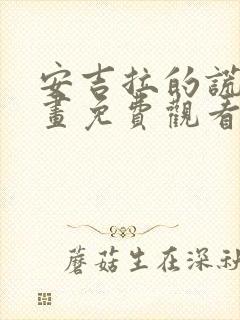 安吉拉的謊
畫免費觀看
蘑菇生在深秋